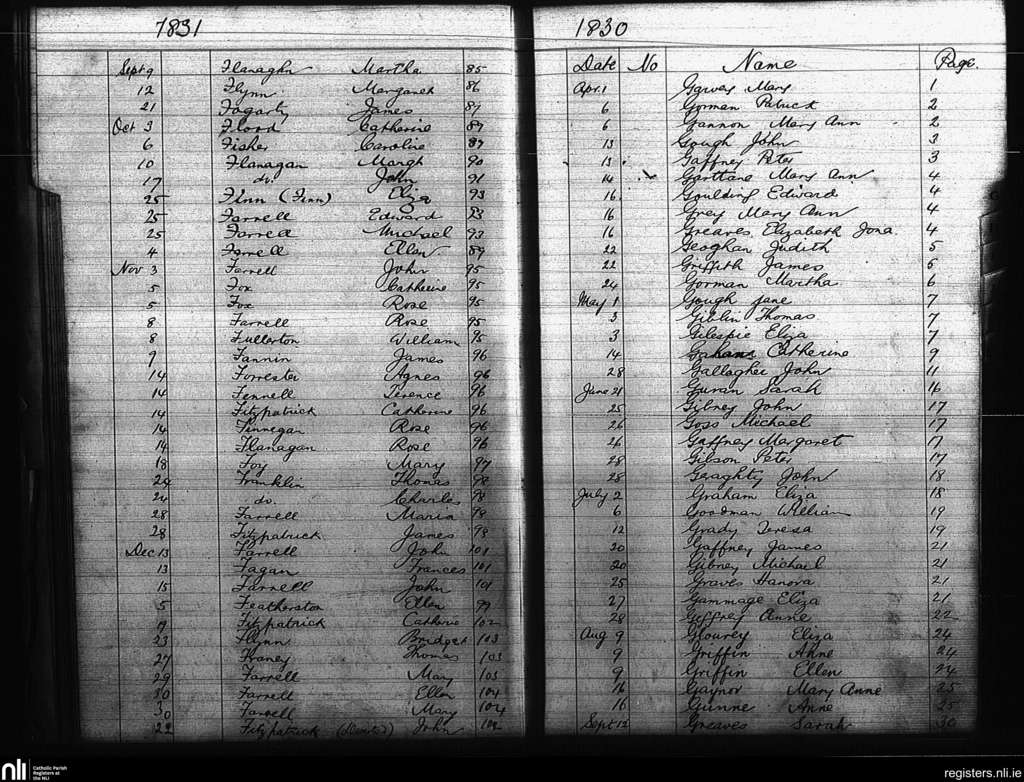 1831
Sept 9 Flanaghn Martha 85
12 Flynn Margaret 86
21 Fogarty James 87
Oct 3 Flood Catherine 89
6 Fisher Caroline 89
10 Flanagan Margt 90
17 do. John 91
25 Flinn (Finn) Eliza 93
25 Farrell Edward 93
25 Farrell Michael 93
4 Farrell Ellen 89
Nov 3 Farrell John 95
5 Fox Catherine 95
5 Fox Rose 95
8 Farrell Rose 95
8 Fullerton William 95
9 Fannin James 96
14 Forrester Agnes 96
14 Fennell Terence 96
14 Fitzpatrick Catherine 96
14 Finnegan Rose 96
14 Flanagan Rose 96
18 Foy Mary 97
24 Franklin Thomas 98
24 do. Charles 98
28 Farrell Maria 98
28 Fitzpatrick James 98
Dec 13 Farrell John 101
13 Fagan Frances 101
15 Farrell John 101
5 Featherston Ellen 99
9 Fitzpatrick Catherie 102
23 Flynn Bridget 103
27 Franey Thomas 103
29 Farrell Mary 103
30 Farrell Ellen 104
30 Farrell Mary 104
22 Fitzpatrick John 102
1830
Date No Name Page.
Apr. 1 Garvey Mary 1
6 Gorman Patrick 2
6 Gannon Mary Ann 2
13 Gough John 3
13 Gaffney Peter 3
14 Garttane Mary Ann 4
16 Goulding Edward 4
16 Grey Mary Ann 4
16 Greaves Elizabeth Jona 4
22 Geoghan Judith 5
22 Griffith James 5
24 Gorman Martha 6
May 1 Gough Jane 7
3 Giblin Thomas 7
3 Gilespie Eliza 7
14 Gahan Catherine 9
28 Gallagher John 11
June 21 Guran Sarah 16
25 Gibney John 17
26 Goss Michael 17
26 Gaffney Margaret 17
28 Gilson Peter 17
28 Geraghty John 18
July 2 Graham Eliza 18
6 Goodman William 19
12 Grady Teresa 19
20 Gaffney James 21
20 Gibney Michael 21
25 Graves Hanora 21
27 Gammage Eliza 21
28 Geffrey Anne 22
Aug 9 Glourey Eliza 24
9 Griffin Anne 24
9 Griffin Ellen 24
16 Gaynor Mary Anne 25
16 Gunne Anne 25
Sept 12 Greaves Sarah 30
nli Catholic Parish
Registers at
the NLI
registers.nli.ie